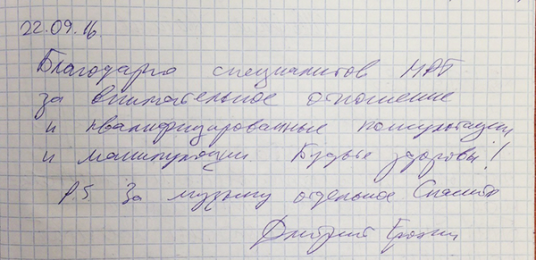 22.09.16.
Благодарю специалистов МРТ
за внимательное отношение
и квалифицированные консультации
и манипуляции Будьте здоровы!
P.S. За музыку отдельное Спасибо
Дмитрий